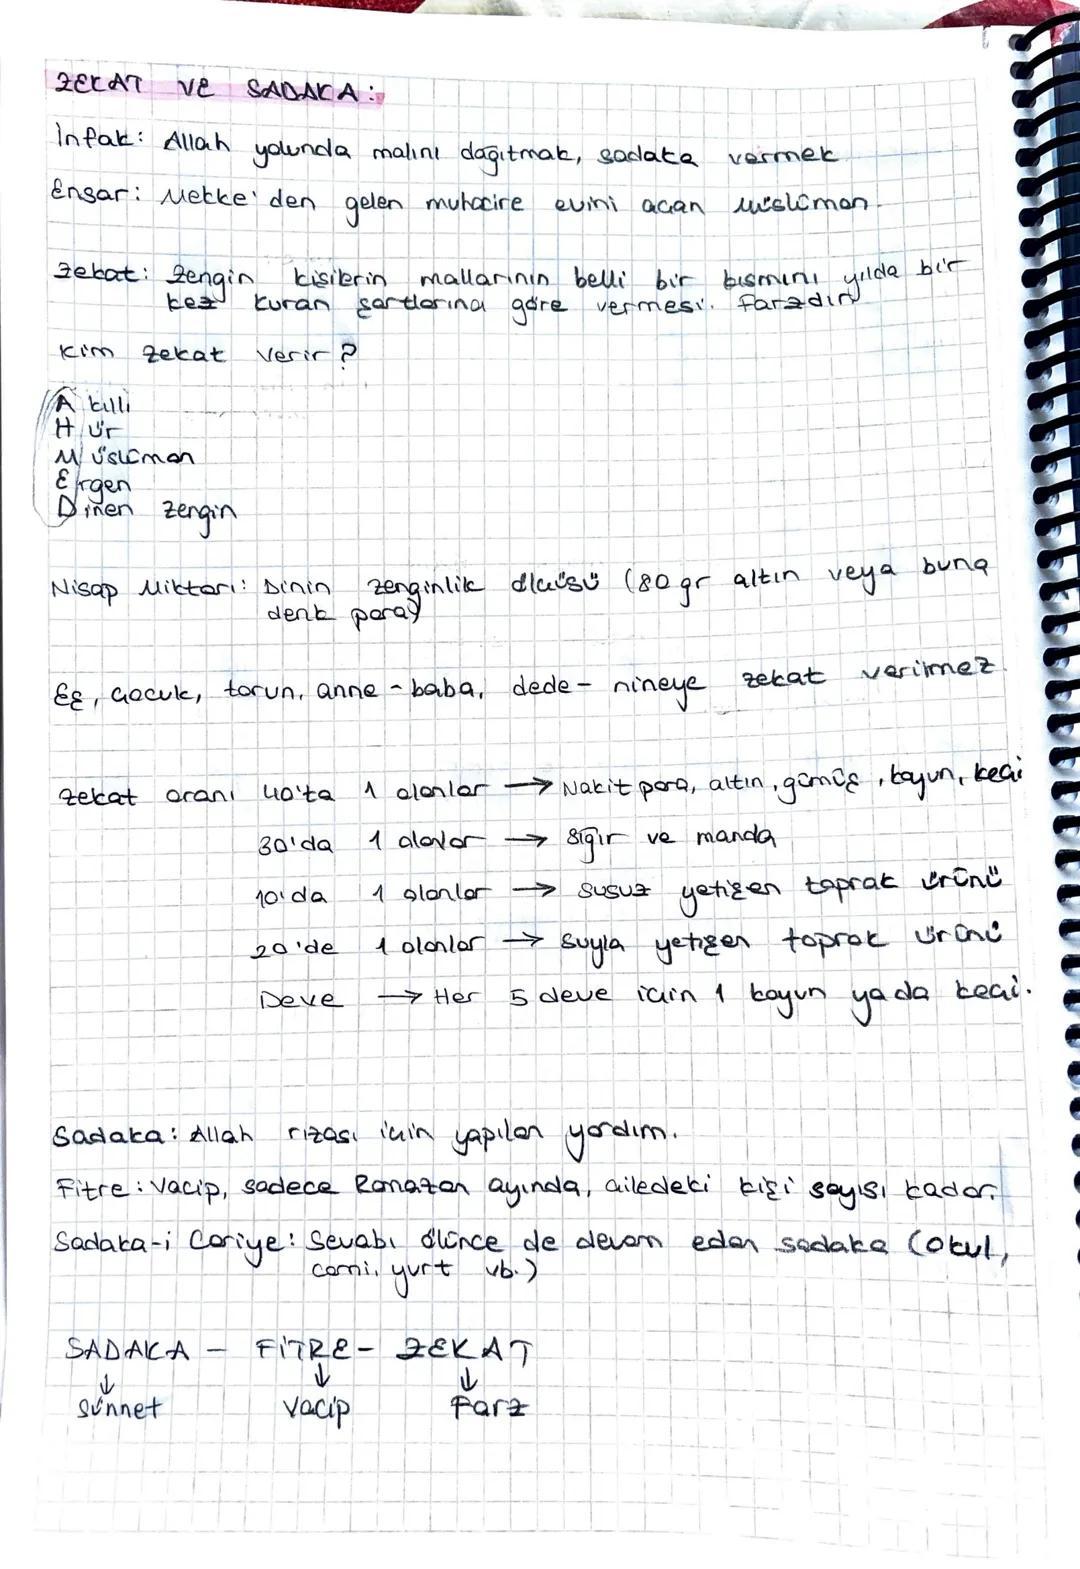 ZEKAT VE SADAKA:
İnfak: Allah yolunda malını dağıtmak, sadaka vermek
Ensar: Mekke'den gelen muhacire evini açan müslüman.
Zekat: Zengin kişilerin mallarının belli bir kısmını yılda bir
kez Kuran şartlarına göre vermesi. Farzdır
Kim zekat verir?
Akıllı
Hür
Müslüman
Ergen
Dinen zengin
Nisap Miktarı: Dinin zenginlik ölçüsü (80 gr altın veya buna
denk para)
Eş, çocuk, torun, anne-baba, dede-nineye zekat verilmez.
Zekat oranı 40'ta 1 olanlar → Nakit para, altın, gümüş, koyun, keçi
30'da 1 olanlar → sığır ve manda
10'da 1 olanlar → susuz yetişen toprak ürünü
20'de 1 olanlar → suyla yetişen toprak ürünü
Deve → Her 5 deve için 1 koyun ya da keçi.
Sadaka: Allah rızası için yapılan yardım.
Fitre: Vacip, sadece Ramazan ayında, ailedeki kişi sayısı kadar.
Sadaka-i Cariye: Sevabı ölünce de devam eden sadaka (Okul,
cami, yurt vb.)
SADAKA - FİTRE - ZEKAT
↓ ↓ ↓
Sünnet Vacip Farz